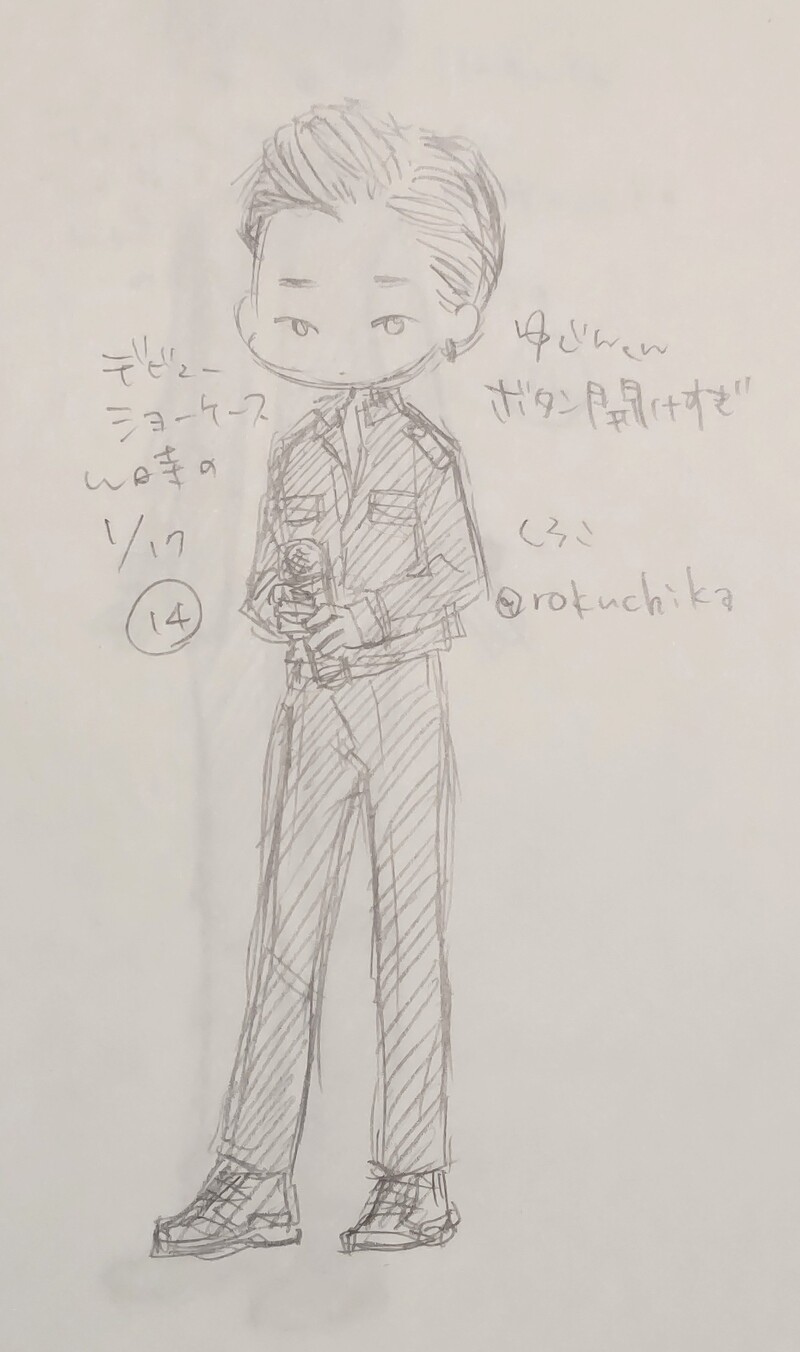 デビュー
ショーケース
ん時の
1/17
14
ゆごんくん
ボタン開けすぎ
くろこ
@rokuchika